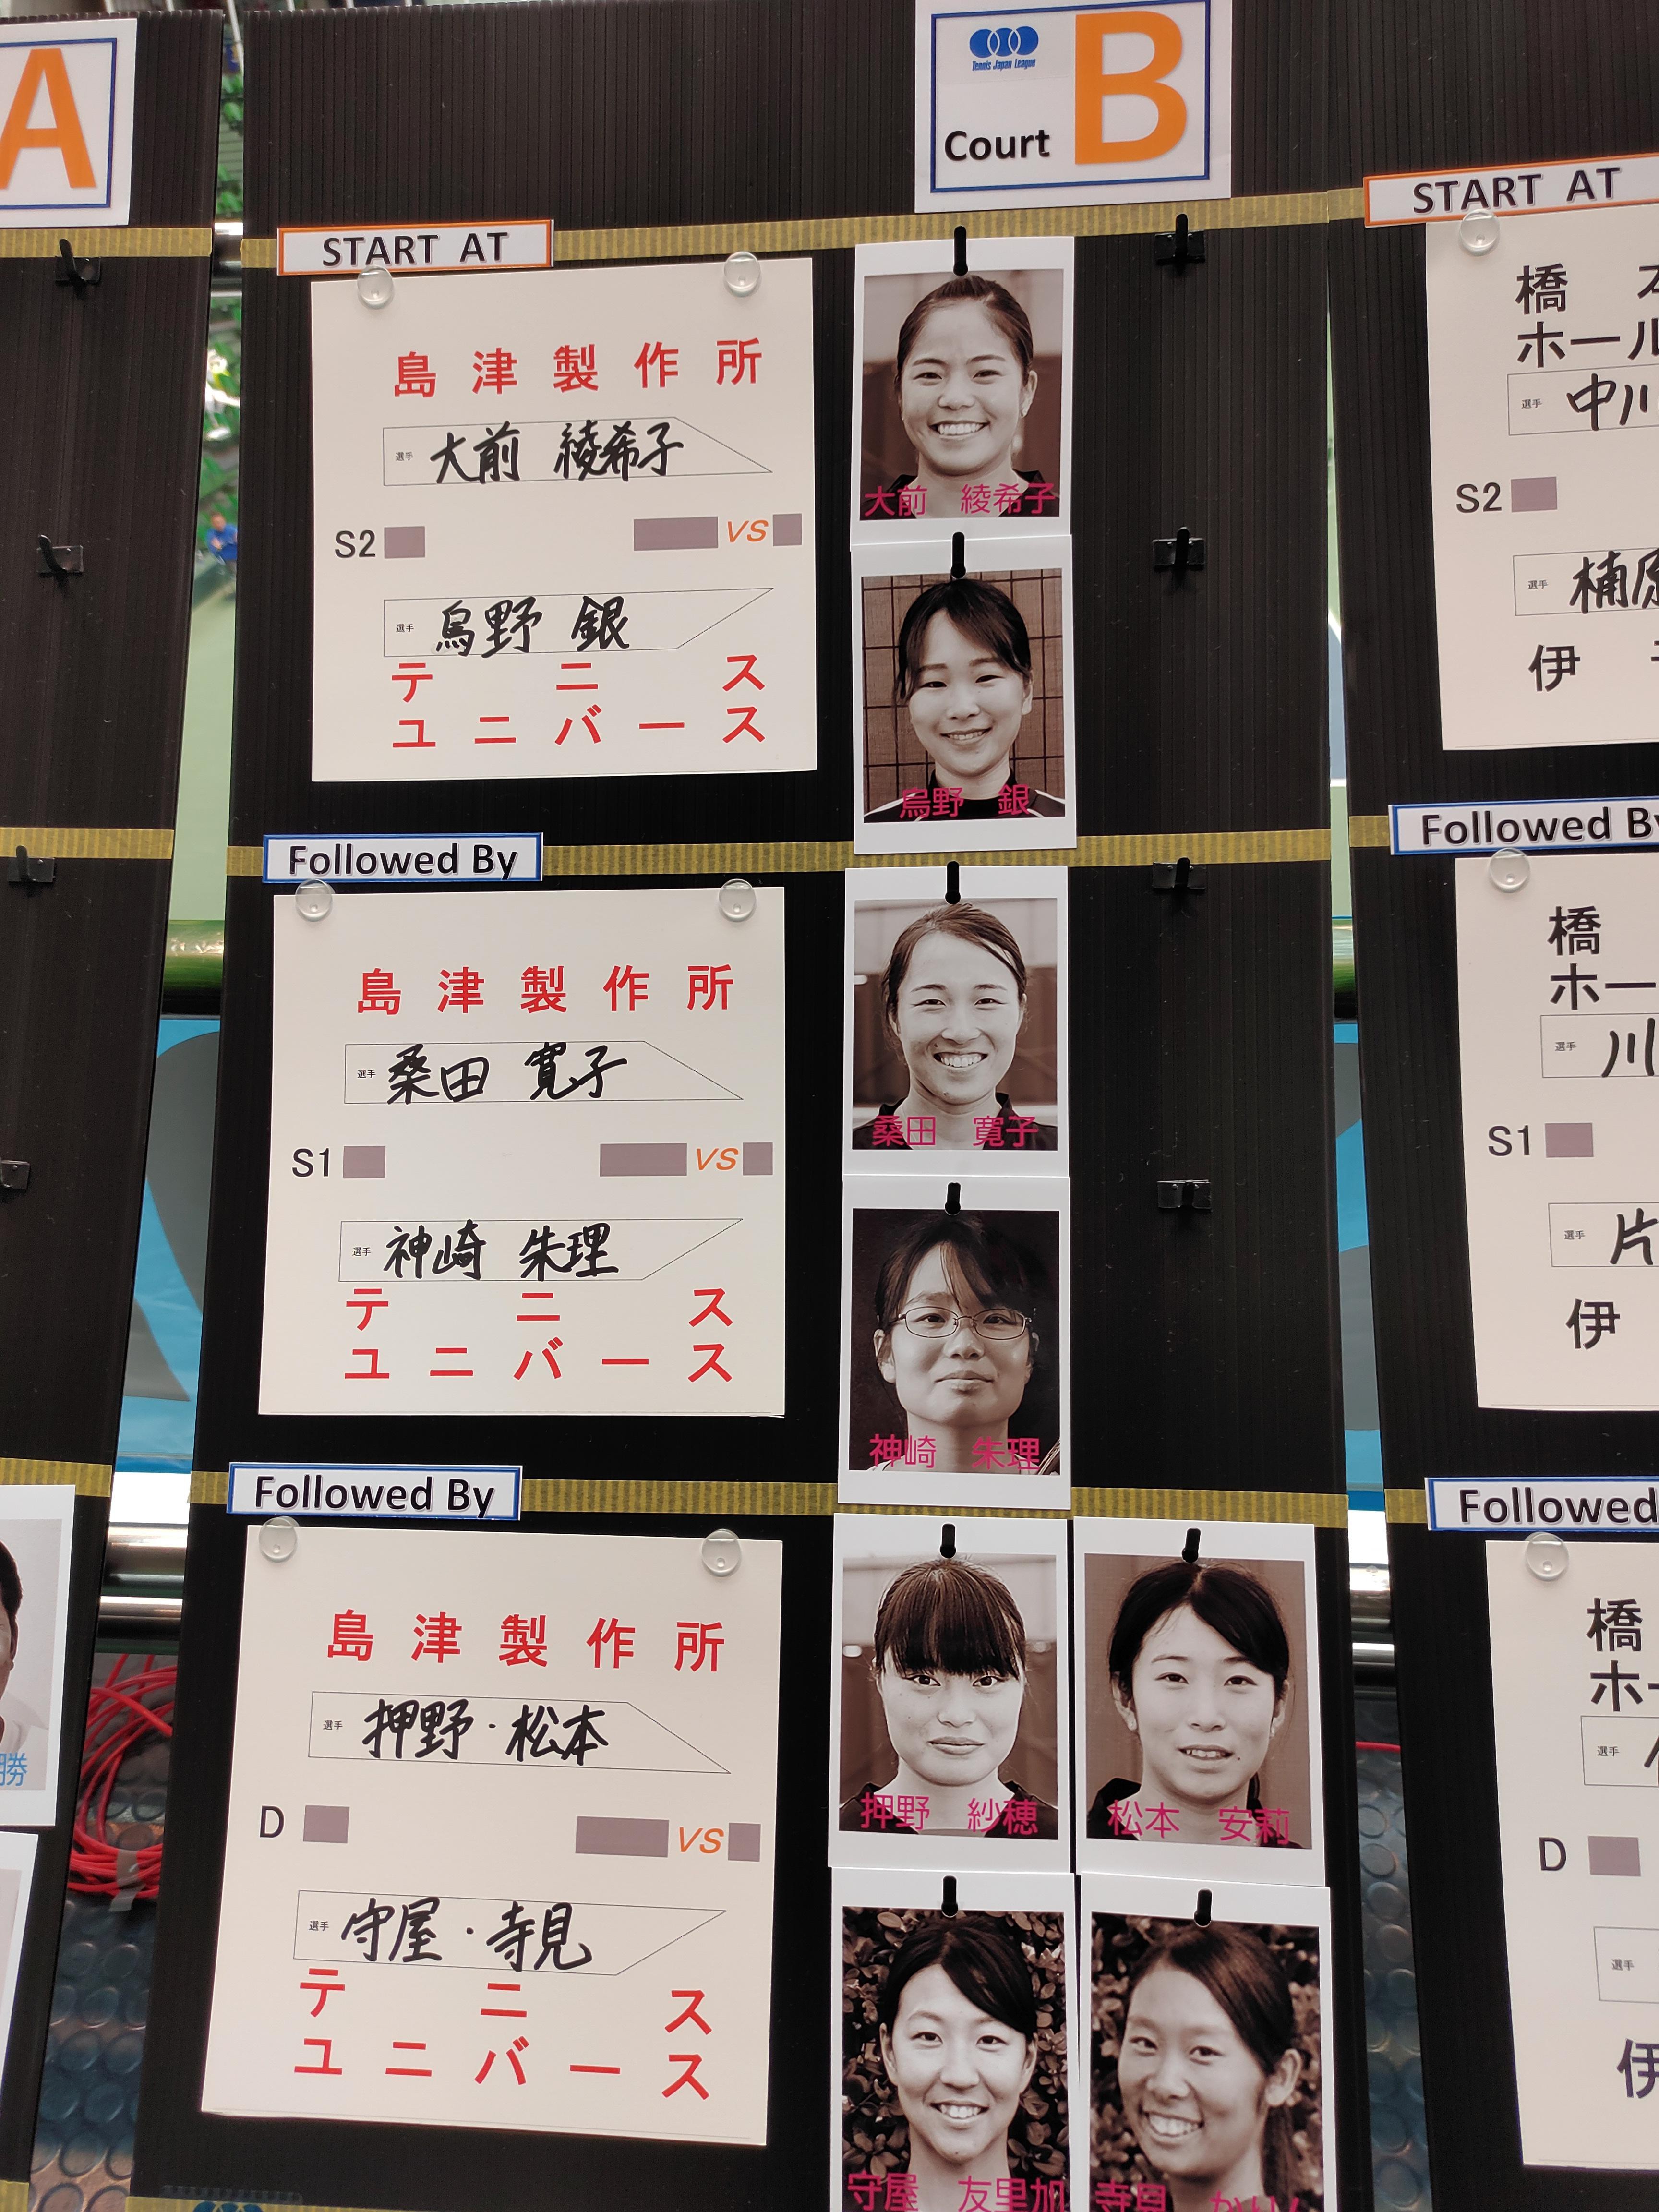 A
Tennis Japan League
Court B
START AT
島津製作所
選手 大前 綾希子
S2 VS
選手 烏野 銀
テニス
ユニバース
大前 綾希子
烏野 銀
Followed By
島津製作所
選手 桑田 寛子
S1 VS
選手 神崎 朱理
テニス
ユニバース
桑田 寛子
神崎 朱理
Followed By
島津製作所
選手 押野・松本
D VS
選手 守屋・寺見
テニス
ユニバース
押野 紗穂
松本 安莉
守屋 友里加
寺見 かりん
勝
START AT
橋
ホール
選手 中川
S2
選手 楠原
伊
Followed By
橋
ホー
選手 川
S1
選手 片
伊
Followed
橋
ホー
選手
D
選手
伊